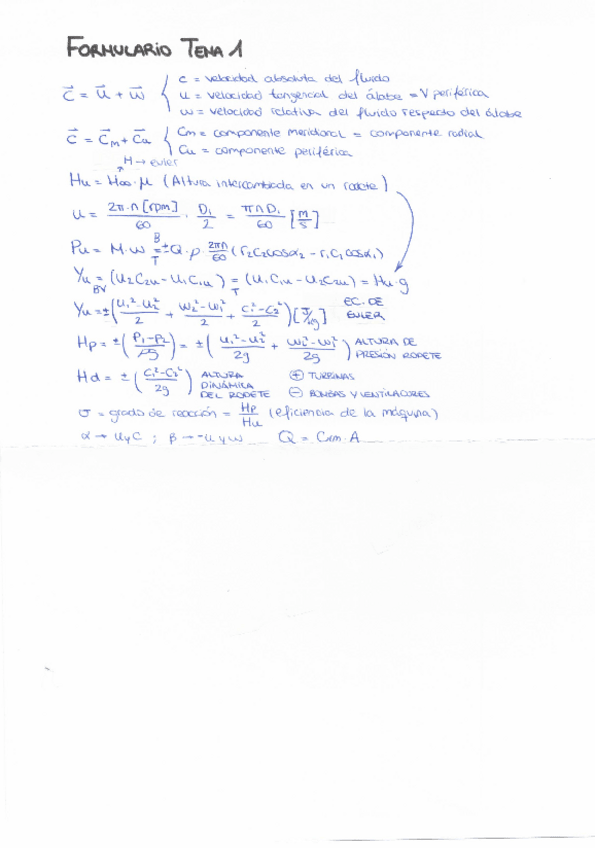 FORMULARIO TEMA 1
c = velocidad absoluta del fluido
c⃗ = u⃗ + w⃗ { u = velocidad tangencial del álabe = V periférica
w = velocidad relativa del fluido respecto del álabe
c⃗ = c⃗m + c⃗u { Cm = componente meridional = componente radial
Cu = componente periférica
H → euler
Hu = H∞ · μ (Altura intercambiada en un rodete)
u = 2π·n [rpm] / 60 · D1 / 2 = πnD1 / 60 [m/s]
Pu = M·w = B T ± Q·ρ · 2πn/60 (r2C2cosα2 - r1C1cosα1)
Yu = BV (U2C2u - U1C1u) = T (U1C1u - U2C2u) = Hu·g
Yu = ± (u1²-u2² / 2 + w2²-w1² / 2 + c1²-c2² / 2) [J/kg] EC. DE EULER
Hp = ± (P1-P2 / ρg) = ± (u1²-u2² / 2g + w2²-w1² / 2g) ALTURA DE PRESIÓN RODETE
Hd = ± (C1²-C2² / 2g) ALTURA DINÁMICA DEL RODETE
⊕ TURBINAS
⊖ BOMBAS Y VENTILADORES
σ = grado de reacción = Hp / Hu (eficiencia de la máquina)
α → u y C ; β → -u y w Q = Cm·A